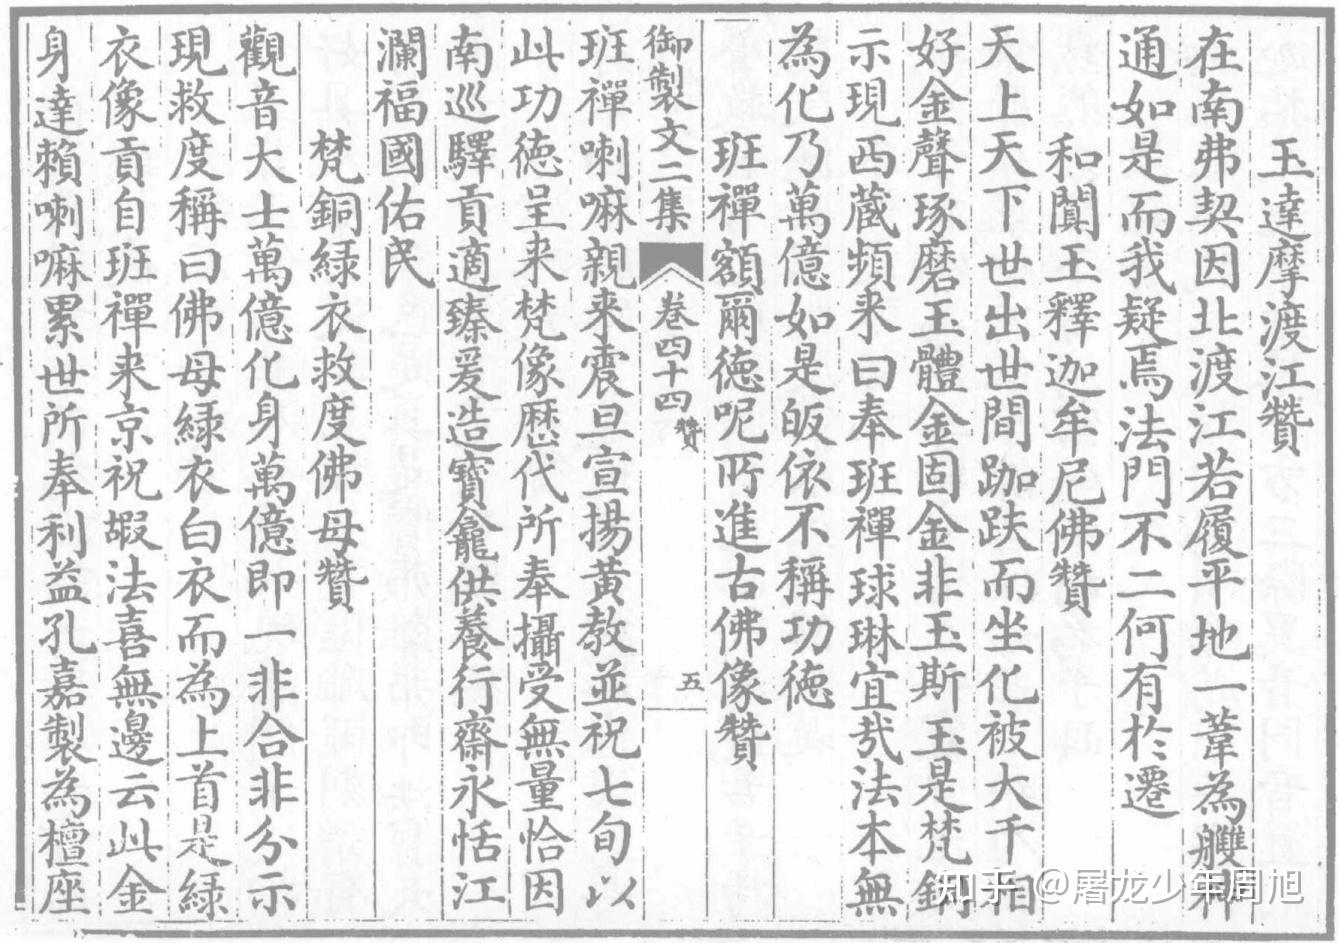 玉達摩渡江贊
在南弗契因北渡江若履平地一葦為艭神
通如是而我疑焉法門不二何有於遷
和闐玉釋迦牟尼佛贊
天上天下世出世間跏趺而坐化被大千相
好金聲琢磨玉體金固金非玉斯玉是梵銅
示現西藏頻来曰奉班禪球琳宜㢤法本無
為化乃萬億如是皈依不稱功徳
班禪額爾徳呢所進古佛像贊
御製文二集 卷四十四 贊 五
班禪喇嘛親来震旦宣揚黄教並祝七旬以
此功徳呈来梵像歴代所奉攝受無量恰因
南巡驛貢適臻爰造寶龕供養行齋永恬江
瀾福國佑民
梵銅緑衣救度佛母贊
觀音大士萬億化身萬億即一非合非分示
現救度稱曰佛母緑衣白衣而為上首是緑
衣像貢自班禪来京祝嘏法喜無邊云此金
身達賴喇嘛累世所奉利益孔嘉製為檀座
知乎 @屠龙少年周旭